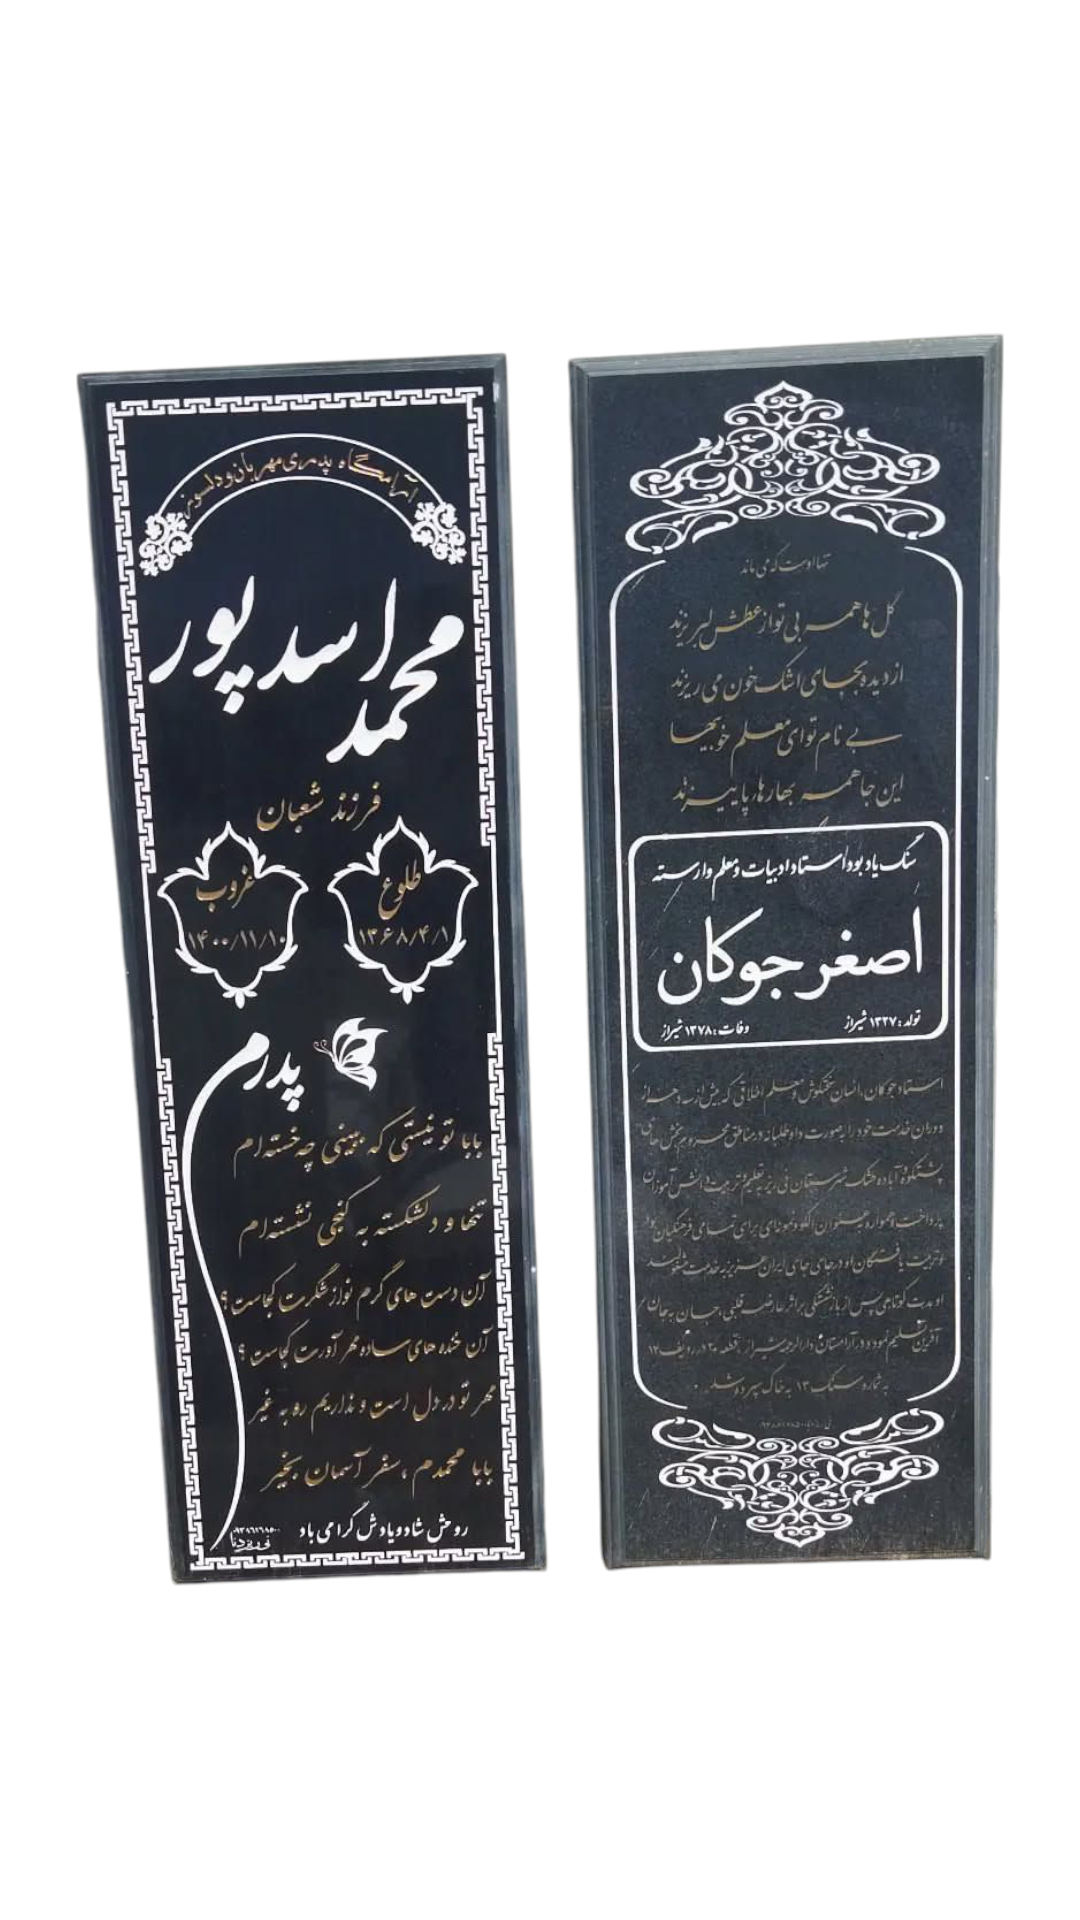 آرامگاه پدری مهربان و دلسوز
محمد اسدپور
فرزند شعبان
طلوع
۱۳۶۸/۴/۱
غروب
۱۴۰۰/۱۱/۱۰
پدرم
بابا تو نیستی که ببینی چه خسته ام
تنها و دلشکسته به کنجی نشسته ام
آن دست های گرم نوازشگرت کجاست؟
آن خنده های ساده مهرآورت کجاست؟
مهر تو در دل است و نداریم رو به غیر
بابا محمدم ، سفر آسمان بخیر
روحش شاد و یادش گرامی باد
تنها اوست که می ماند
گل ها همه بی تو از عطش لبریزند
از دیده بجای اشک خون می ریزند
بی نام تو ای معلم خوبیها
این جا همه بهارها، پاییزند
سنگ یادبود استاد ادبیات و معلم وارسته
اصغر جوکان
تولد: ۱۳۲۷ شیراز
وفات: ۱۳۷۸ شیراز
استاد جوکان، انسان سختکوش و معلم اخلاقی که بیش از سه دهه از
دوران خدمت خود را به صورت داوطلبانه در مناطق محروم بخش های
پشتکوه و آباده طشک شهرستان نی ریز به تعلیم و تربیت دانش آموزان
پرداخت و همواره بعنوان الگو و نمونه ای برای تمامی فرهنگیان بود
و تربیت یافتگان او در جای جای ایران عزیز به خدمت مشغولند
او مدت کوتاهی پس از بازنشستگی بر اثر عارضه قلبی، جان به جان
آفرین تسلیم نمود و در آرامستان دارالرحمه شیراز، قطعه ۲۰ در ردیف ۱۲
به شماره سنگ ۱۳ به خاک سپرده شد.